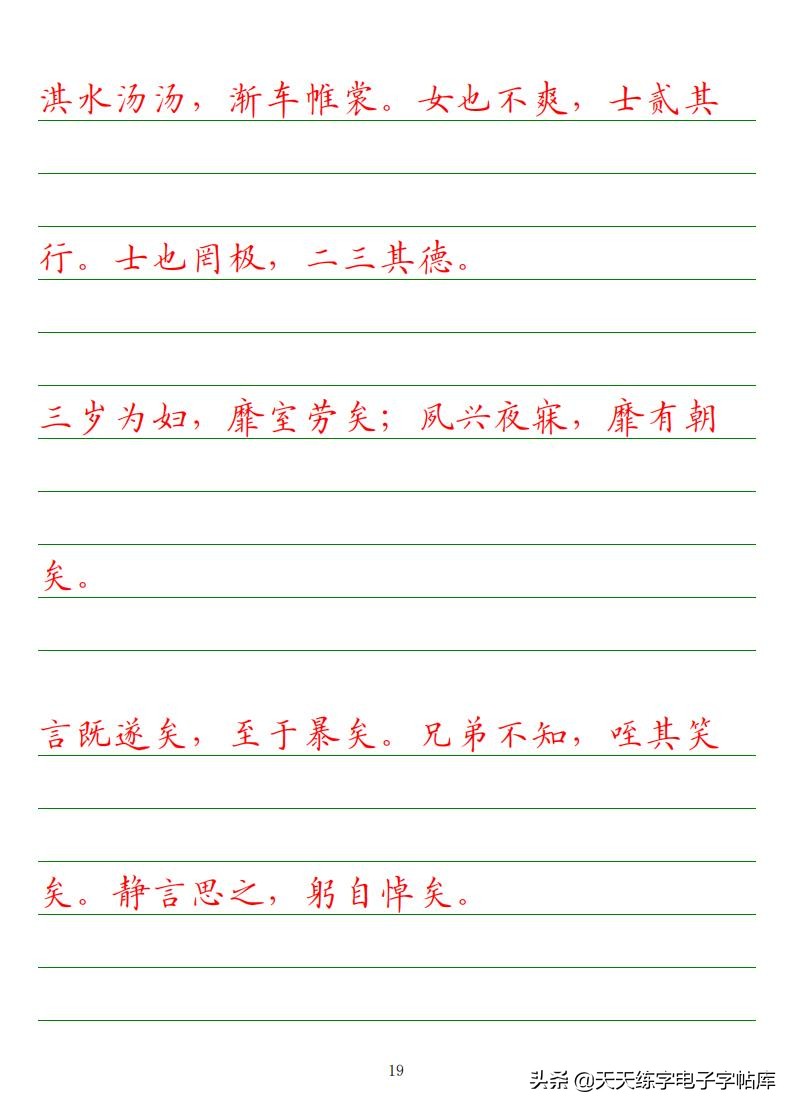 淇水汤汤，渐车帷裳。女也不爽，士贰其
行。士也罔极，二三其德。
三岁为妇，靡室劳矣；夙兴夜寐，靡有朝
矣。
言既遂矣，至于暴矣。兄弟不知，咥其笑
矣。静言思之，躬自悼矣。
19
头条 @天天练字电子字帖库